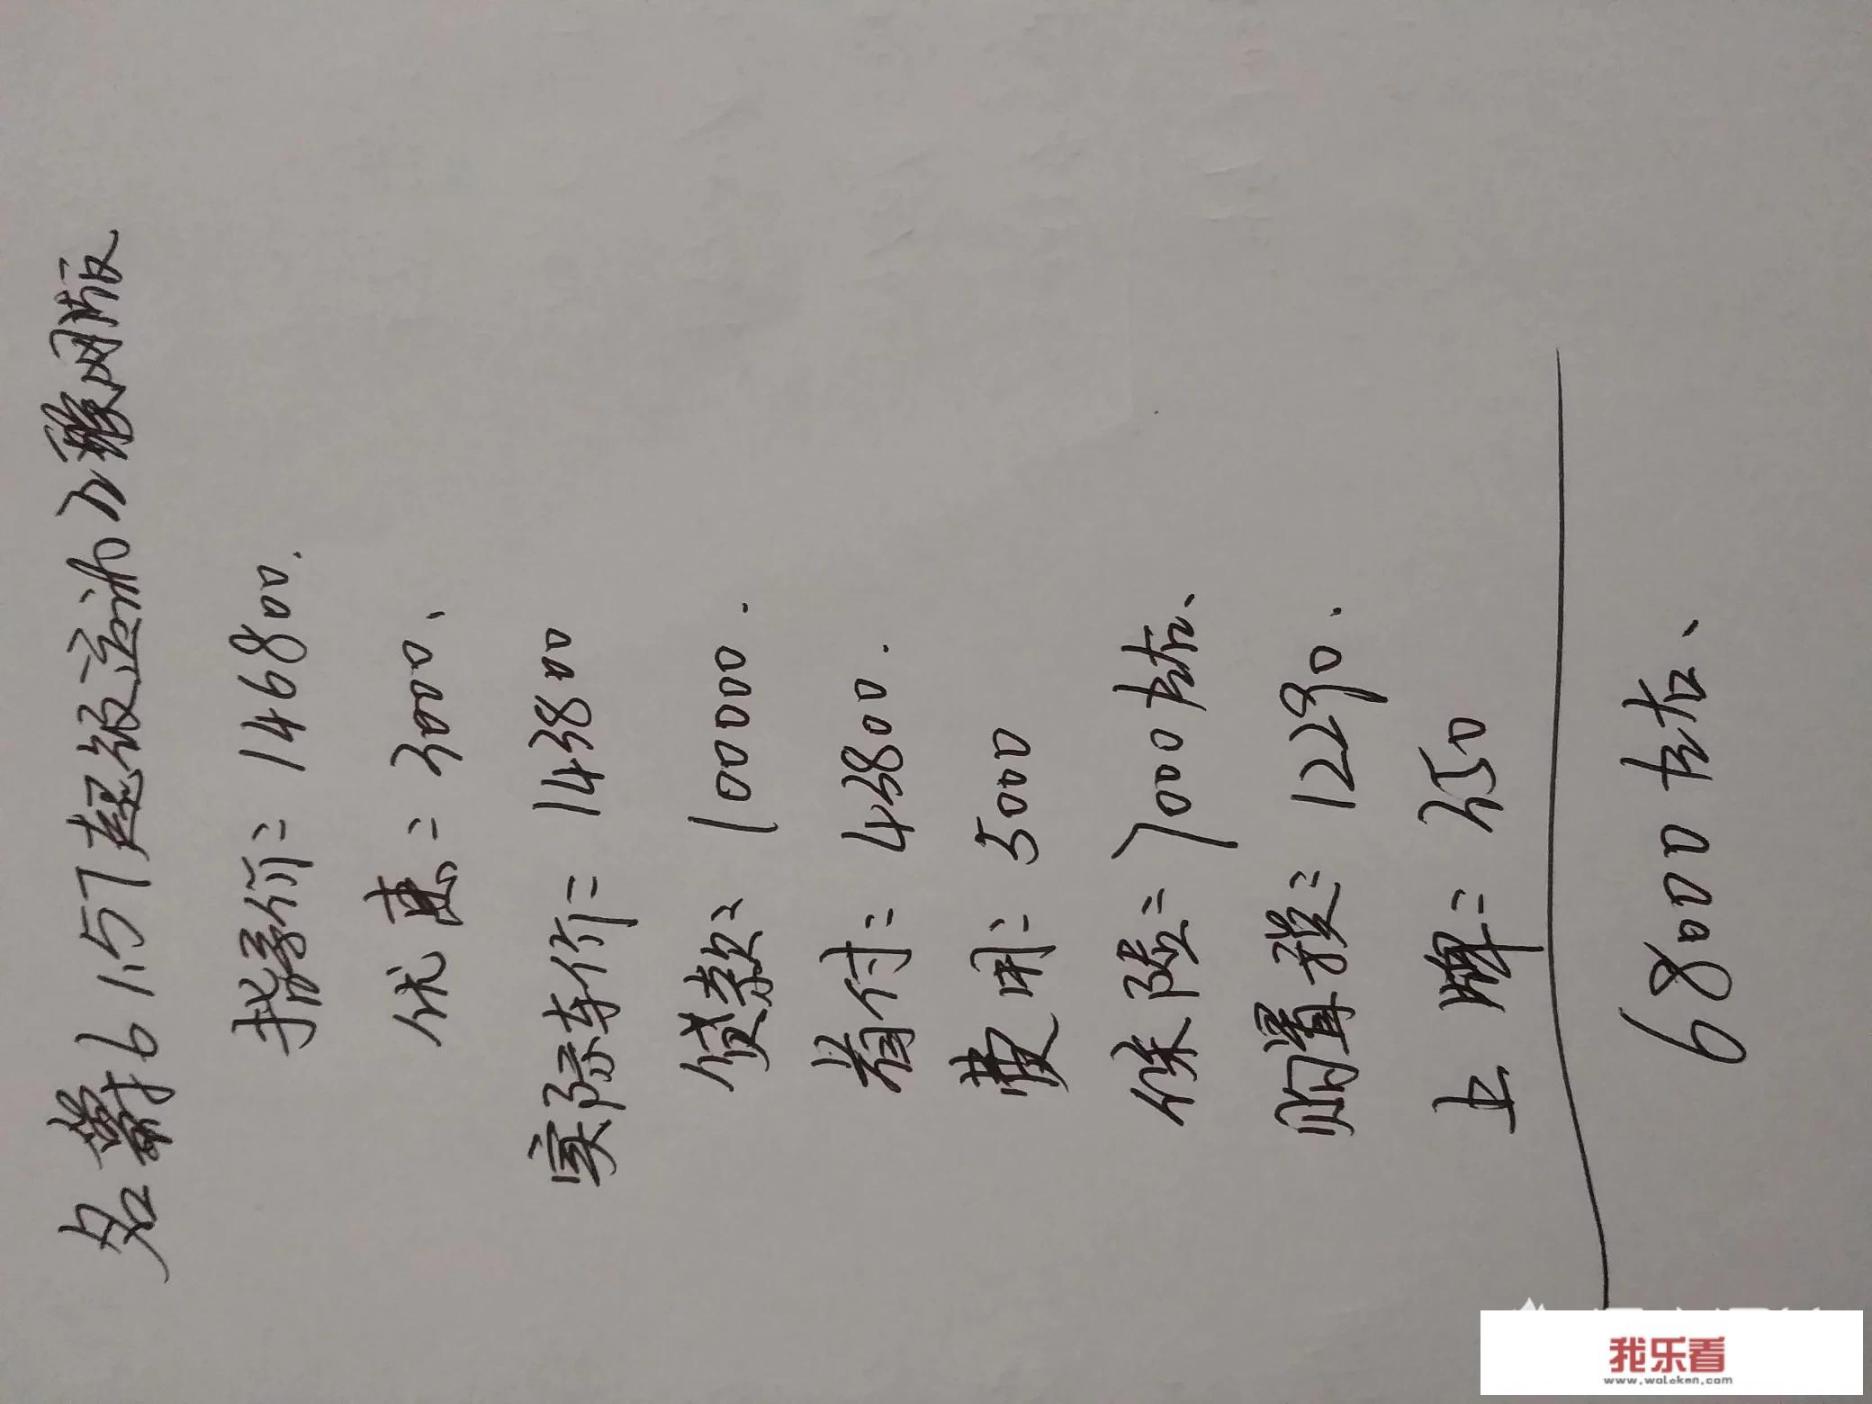 名爵6 1.5T超级运动互联网版
指导价=146800.
优惠=3000、
实际车价=143800
贷款=100000.
首付=43800.
费用=5000
保险=7000左右、
购置税=12290.
上牌=250
68000左右、
我乐看
www.woleken.com